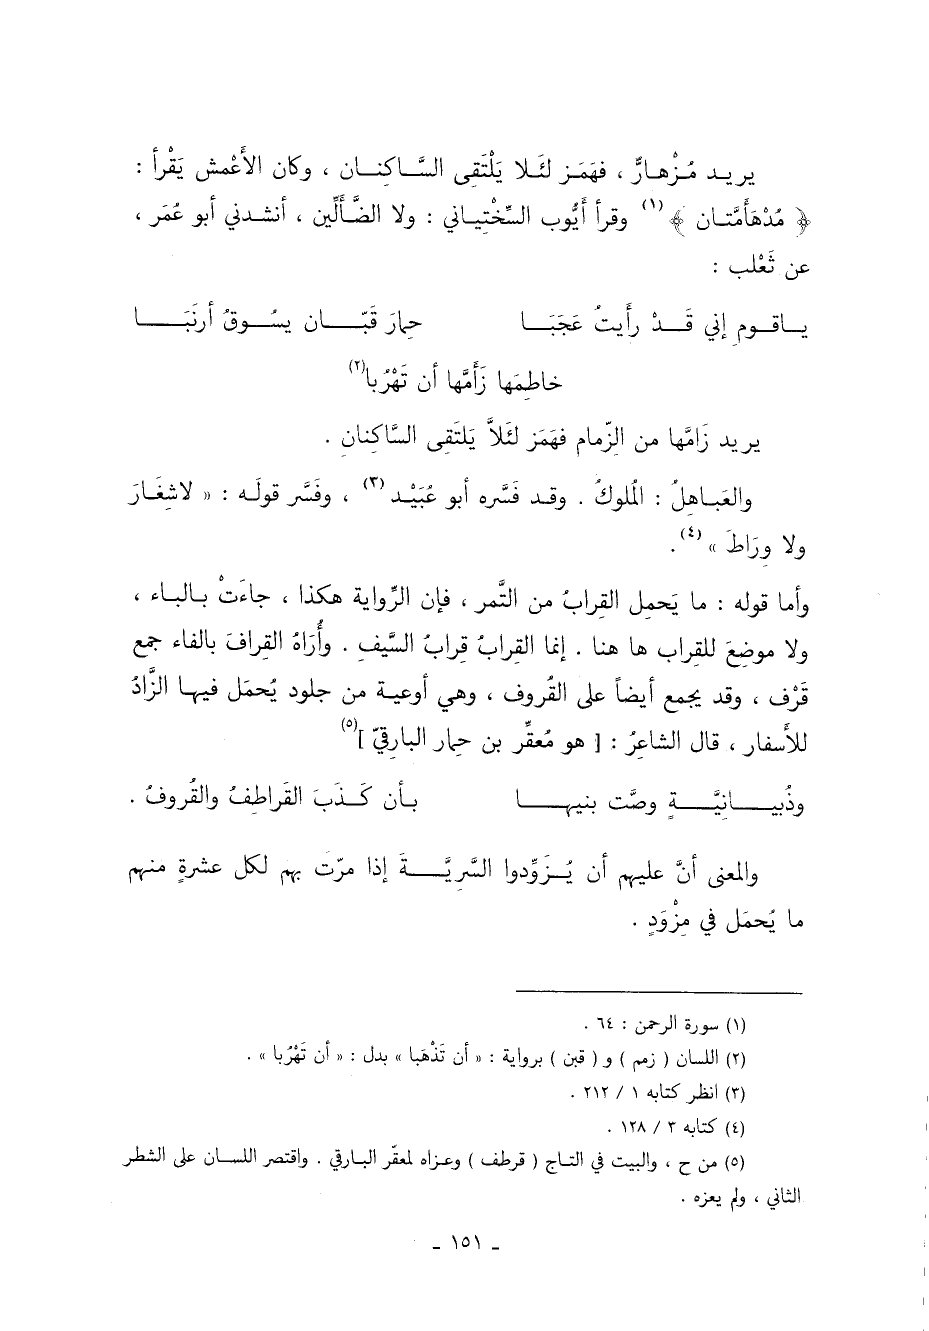 يريد مُزْهارٌّ ، فهَمَز لئَلا يَلْتَقى السَّاكِنان ، وكان الأَعْمش يَقْرأ :
﴿ مُدْهَأمَّتان ﴾ (١) وقرأ أيُّوب السِّخْتياني : ولا الضَّأَلِّين ، أنشدني أبو عُمَر ،
عن ثَعْلب :
ياقوم إني قَدْ رأيتُ عَجَبَا حِمارَ قَبّان يسُوقُ أرنَبَا
خاطِمَها زَأَمَّها أن تَهْرُبا (٢)
يريد زَامَّها من الزِّمام فهَمَز لئَلاَّ يَلتَقى السَّاكِنانِ .
والعَباهِلُ : المُلوكُ . وقد فسَّره أبو عُبَيْد (٣) ، وفَسَّر قولَه : « لاشِغَارَ
ولا وِرَاطَ » (٤) .
وأما قوله : ما يَحمِل القِرابُ من التَّمر ، فإن الرِّواية هكذا ، جاءَتْ بالباء ،
ولا موضِعَ للقِراب ها هنا . إنما القِرابُ قِرابُ السَّيفِ . وأُرَاهُ القِرافَ بالفاء جمع
قَرْف ، وقد يجمع أيضاً على القُروف ، وهي أوعية من جلود يُحمَل فيها الزَّادُ
للأَسفار ، قال الشاعِرُ : [ هو مُعقِّر بن حِمار البارقيّ ] (٥)
وذُبيانِيَّةٍ وصَّت بنيها بأن كَذَبَ القَراطِفُ والقُروفُ .
والمعنى أنَّ عليهم أن يُزَوِّدوا السَّرِيَّةَ إذا مرّت بهم لكل عشرةٍ منهم
ما يُحمَل في مِزْوَدٍ .
(١) سورة الرحمن : ٦٤ .
(٢) اللسان ( زمم ) و ( قبن ) برواية : « أن تَذْهَبا » بدل : « أن تَهْرُبا » .
(٣) انظر كتابه ١ / ٢١٢ .
(٤) كتابه ٣ / ١٢٨ .
(٥) من ح ، والبيت في التاج ( قرطف ) وعزاه لمعقّر البارقي . واقتصر اللسان على الشطر
الثاني ، ولم يعزه .
ـ ١٥١ ـ